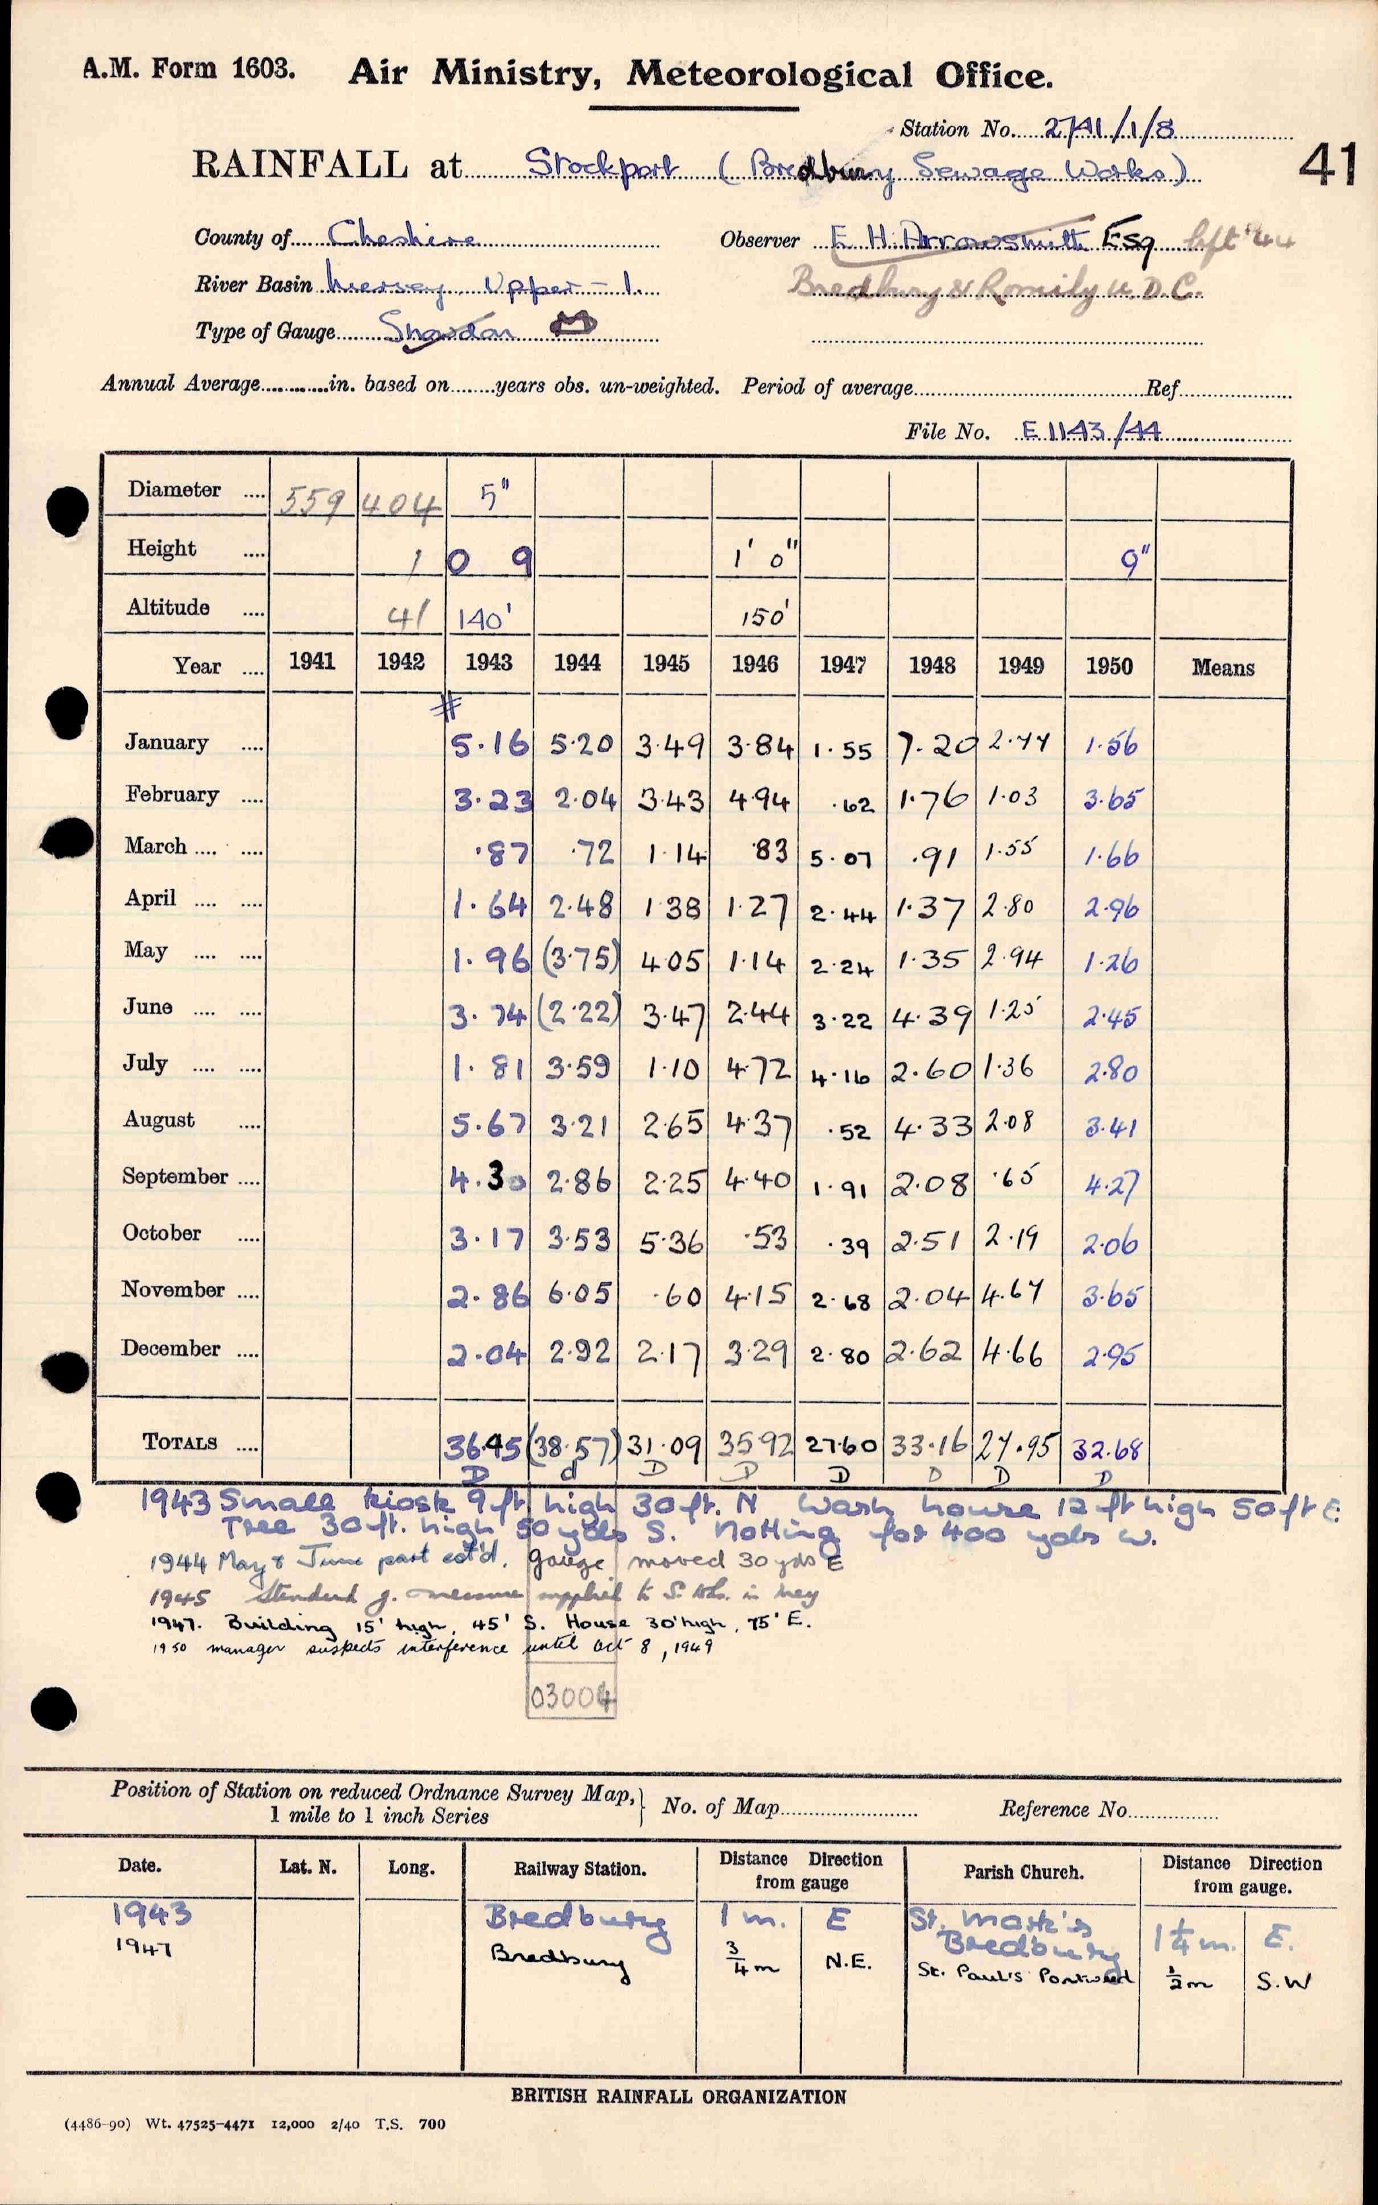 A.M. Form 1603. Air Ministry, Meteorological Office.
Station No. 2741/1/8
RAINFALL at Stockport (Bredbury Sewage Works)
41
County of Cheshire Observer E H Arrowsmith Esq left '44
River Basin Mersey Upper - 1. Bredbury & Romily U.D.C.
Type of Gauge Snowdon M
Annual Average in. based on years obs. un-weighted. Period of average Ref
File No. E 1143/44
Diameter 559 404 5"
Height 1 0 9 1' 0" 9"
Altitude 41 140' 150'
Year 1941 1942 1943 1944 1945 1946 1947 1948 1949 1950 Means
#
January 5.16 5.20 3.49 3.84 1.55 7.20 2.77 1.56
February 3.23 2.04 3.43 4.94 .62 1.76 1.03 3.65
March .87 .72 1.14 .83 5.07 .91 1.55 1.66
April 1.64 2.48 1.38 1.27 2.44 1.37 2.80 2.96
May 1.96 (3.75) 4.05 1.14 2.24 1.35 2.94 1.26
June 3.74 (2.22) 3.47 2.44 3.22 4.39 1.25 2.45
July 1.81 3.59 1.10 4.72 4.16 2.60 1.36 2.80
August 5.67 3.21 2.65 4.37 .52 4.33 2.08 3.41
September 4.30 2.86 2.25 4.40 1.91 2.08 .65 4.27
October 3.17 3.53 5.36 .53 .39 2.51 2.19 2.06
November 2.86 6.05 .60 4.15 2.68 2.04 4.67 3.65
December 2.04 2.92 2.17 3.29 2.80 2.62 4.66 2.95
TOTALS 36.45 (38.57) 31.09 35.92 27.60 33.16 27.95 32.68
D d D D D D D D
1943 Small kiosk 9ft. high 30ft. N Wash house 12ft high 50ft E
Tree 30ft. high 50 yds S. Nothing for 400 yds W.
1944 May & June part est'd. gauge moved 30 yds E
1945 Standard g. measure supplied to S. Wks. in May
1947. Building 15' high, 45' S. House 30' high, 75' E.
1950 manager suspects interference until Oct 8, 1949
03004
Position of Station on reduced Ordnance Survey Map,
1 mile to 1 inch Series
No. of Map Reference No.
Date. Lat. N. Long. Railway Station. Distance Direction from gauge Parish Church. Distance Direction from gauge.
1943 Bredbury 1 m. E St. Mark's Bredbury 1¼ m. E.
1947 Bredbury ¾ m N.E. St. Paul's Portwood ½ m S.W
BRITISH RAINFALL ORGANIZATION
(4486-90) Wt. 47525-4471 12,000 2/40 T.S. 700